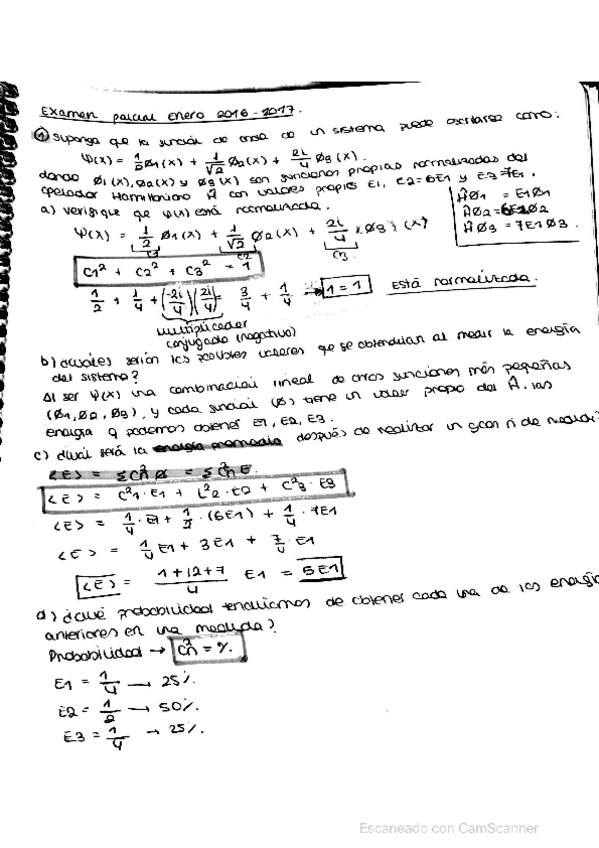 Examen parcial enero 2016-2017.
① Suponga que la función de onda de un sistema puede escribirse como:
Ψ(x) = 1/2 Ø1(x) + 1/√2 Ø2(x) + 2i/4 Ø3(x).
donde Ø1(x), Ø2(x) y Ø3(x) son funciones propias normalizadas del
operador Hamiltoniano Ĥ con valores propios E1, E2=6E1 y E3=7E1.
ĤØ1 = E1Ø1
ĤØ2=6E1Ø2
ĤØ3=7E1Ø3.
a) verifique que Ψ(x) está normalizada.
Ψ(x) = 1/2 Ø1(x) + 1/√2 Ø2(x) + 2i/4 Ø3(x)
C1² + C2² + C3² = 1
1/2 + 1/4 + (-2i/4)(2i/4) = 3/4 + 1/4 → 1=1 Está normalizada.
multiplicador
conjugado (negativo)
b) ¿cuáles serían los posibles valores que se obtendrían al medir la energía
del sistema?
Al ser Ψ(x) una combinación lineal de otras funciones más pequeñas
(Ø1, Ø2, Ø3), y cada función (Ø) tiene un valor propio del Ĥ. las
energía q podemos obtener E1, E2, E3.
c) ¿cuál será la energía promedio después de realizar un gran nº de medidas?
<E> = C²1·E1 + C²2·E2 + C²3·E3
<E> = 1/4·E1 + 1/2·(6E1) + 1/4·7E1
<E> = 1/4 E1 + 3E1 + 7/4·E1
<E> = 1+12+7/4 E1 = 5E1
d) ¿qué probabilidad tendríamos de obtener cada una de las energías
anteriores en una medida?
Probabilidad → Cn² = %.
E1 = 1/4 → 25%
E2 = 1/2 → 50%.
E3 = 1/4 → 25%.
Escaneado con CamScanner